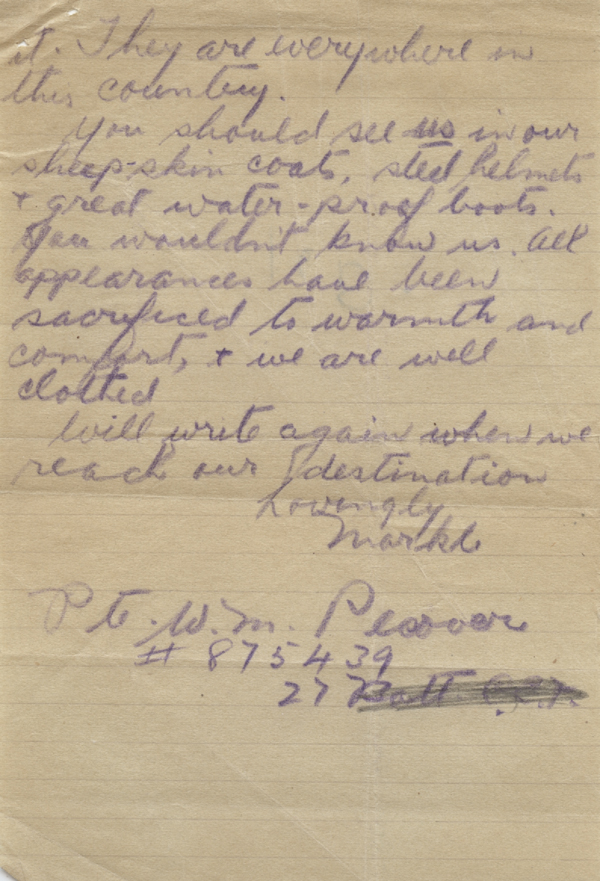 it. They are everywhere in
this country.
You should see us in our
sheep-skin coats, steel helmets
+ great water-proof boots.
You wouldn't know us. All
appearances have been
sacrificed to warmth and
comfort, + we are well
clothed
Will write again when we
reach our destination
Lovingly
Pte. W. M. Pecover
# 875439
27 Batt